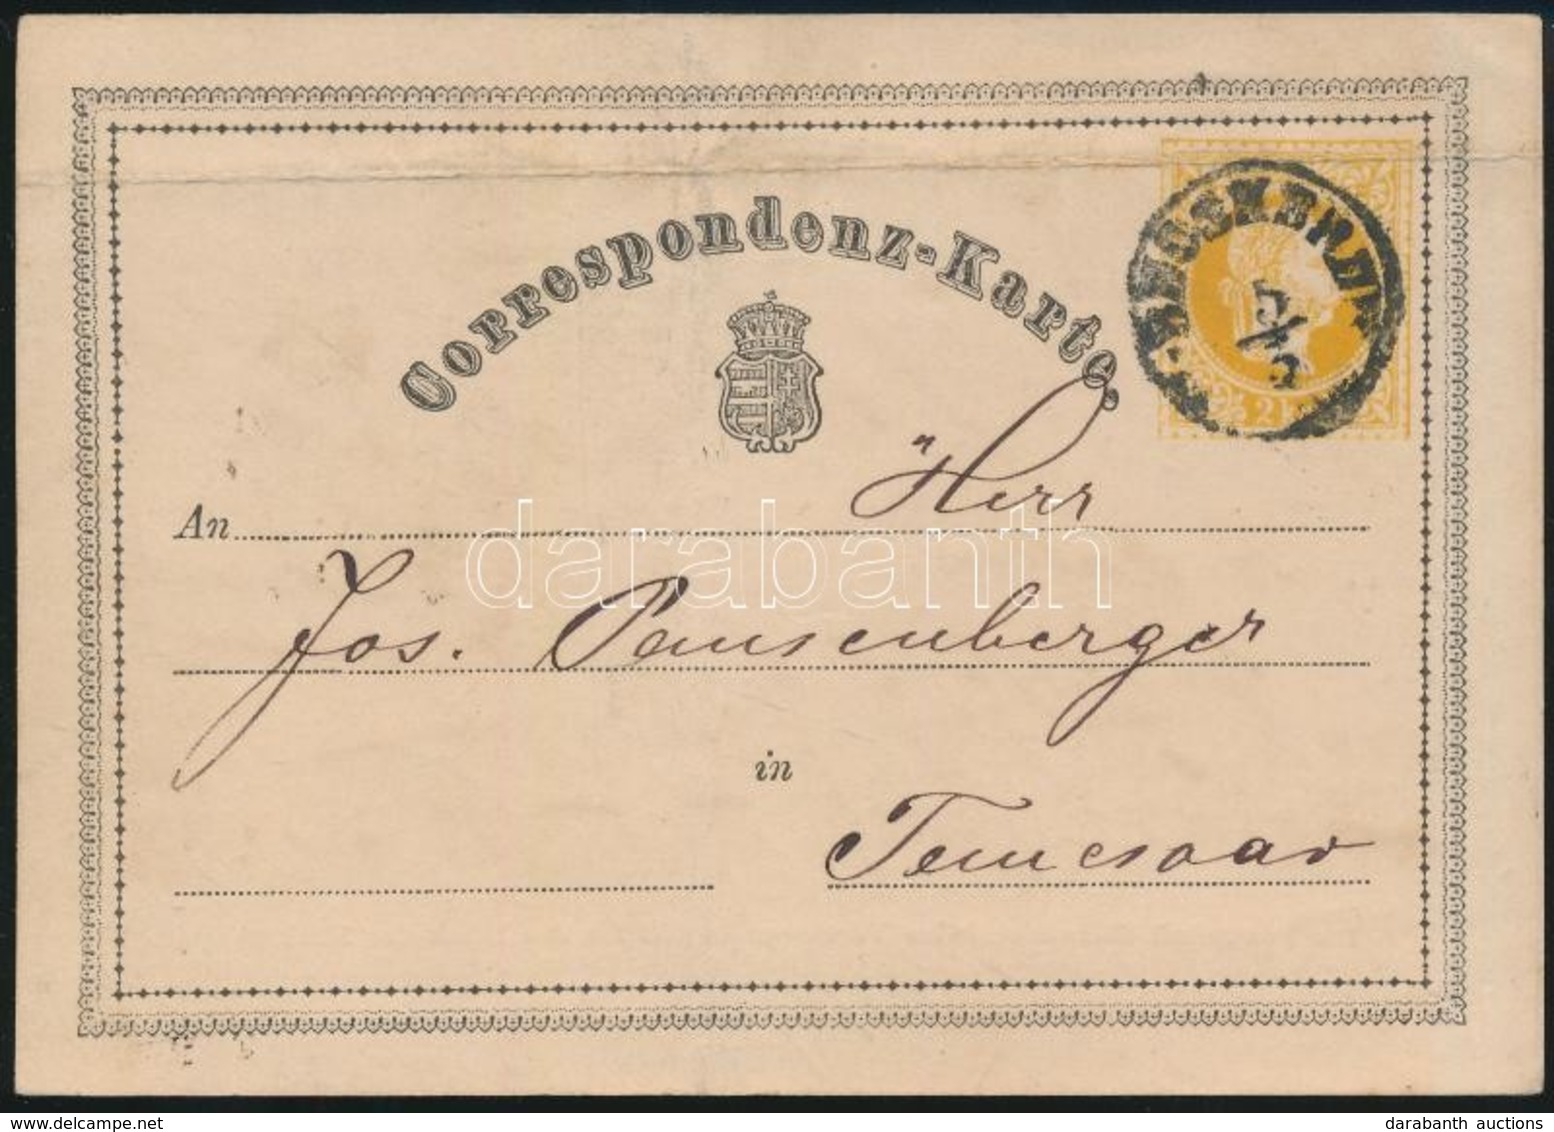 Correspondenz-Karte.
5/3
2 K
An Herr
Jos. Pausenberger
in
Temesvar
darabanth
delcampe.net
darabanth auctions